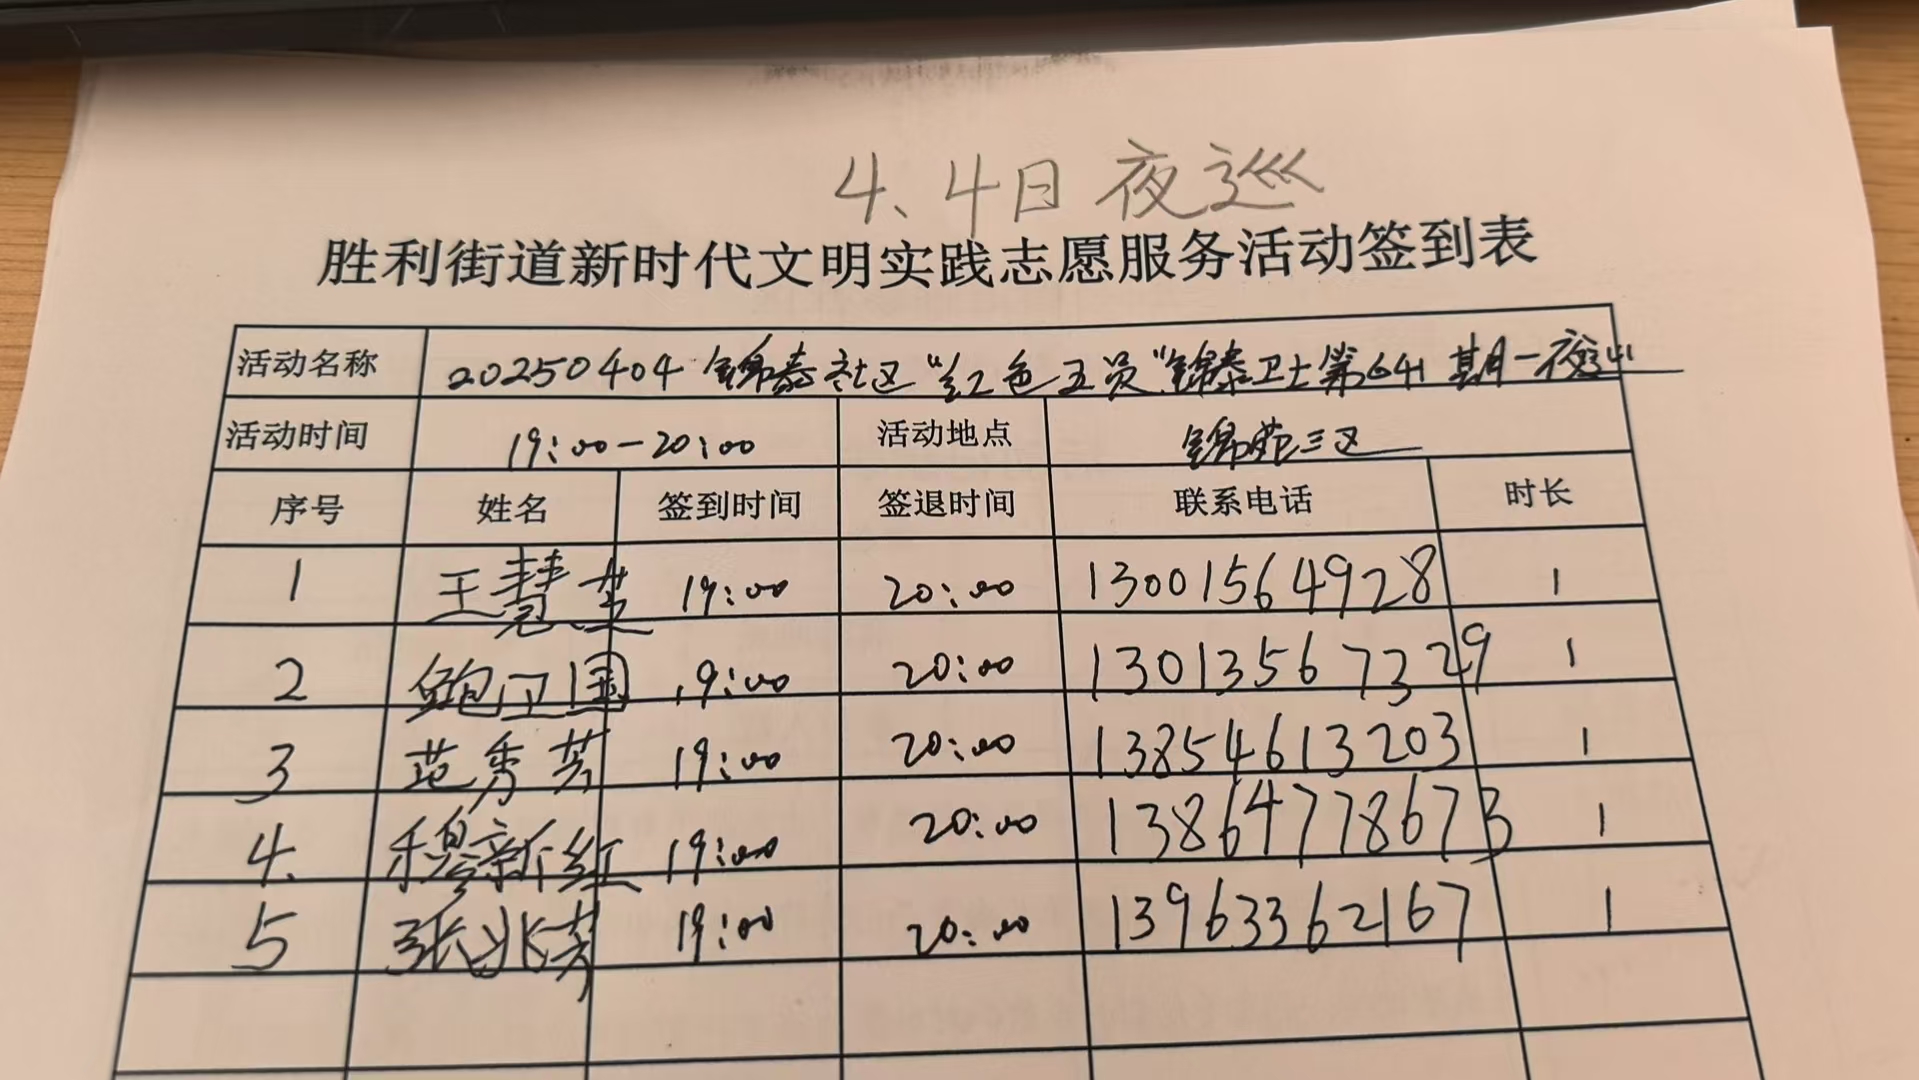 4、4日 夜巡
胜利街道新时代文明实践志愿服务活动签到表
活动名称 20250404 锦泰社区“红色五员”锦泰卫士第641期一夜巡
活动时间 19:00-20:00 活动地点 锦苑三区
序号 姓名 签到时间 签退时间 联系电话 时长
1 王慧 19:00 20:00 13001564928 1
2 鲍卫国 19:00 20:00 13013567329 1
3 范秀芳 19:00 20:00 13854613203 1
4. 穆新红 19:00 20:00 13864778673 1
5 张兆芳 19:00 20:00 13963362167 1